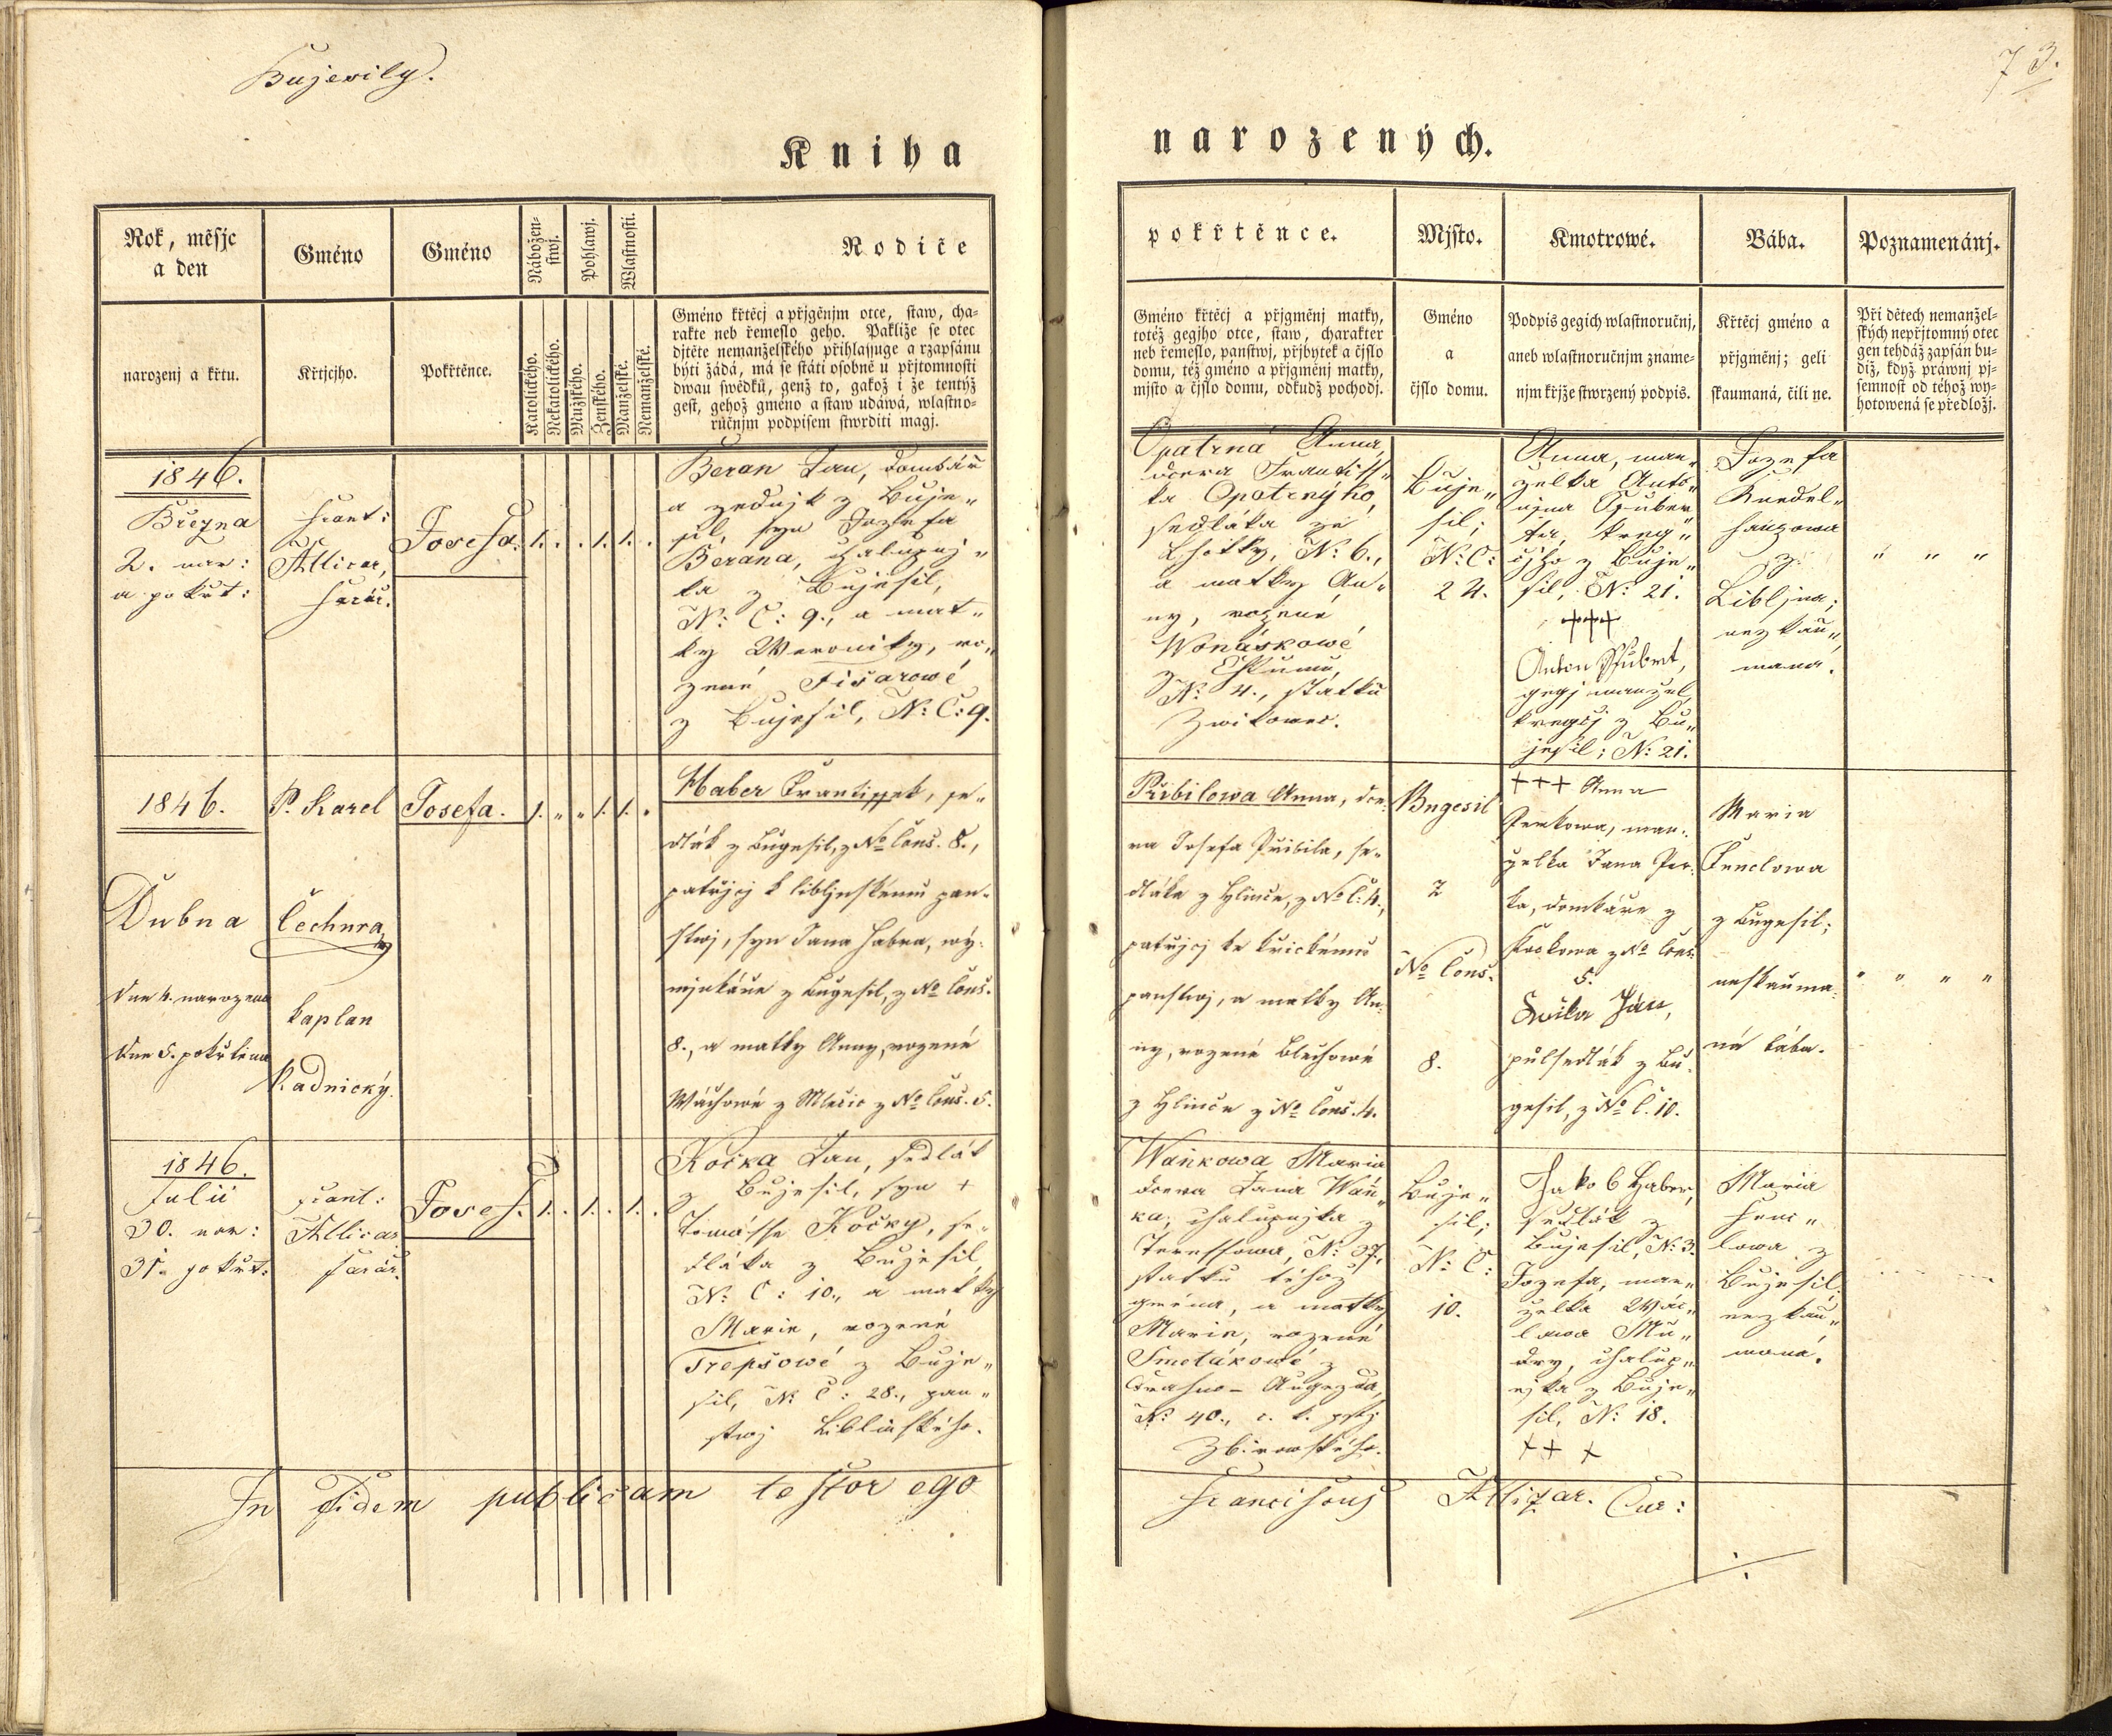 Bujesily.
73.
Kniha
narozených.
Rok, měsjc
a den
Gméno
Gméno
Nábožen-
stwj.
Pohlawj.
Wlastnosti.
Rodiče
narozenj a křtu.
Křtjcjho.
Pokřtěnce.
Katolického.
Nekatolického.
Mužského.
Ženského.
Manželské.
Nemanželské.
Gméno křtěcj a přjgěnjm otce, staw, cha-
rakte neb řemeslo geho. Pakliže se otec
djtěte nemanželského přihlassuge a rzapsánu
býti žádá, má se státi osobně u přjtomnosti
dwau swědků, genž to, gakož i že tentýž
gest, gehož gméno a staw udáwá, wlastno-
ručnjm podpisem stwrditi magj.
pokřtěnce.
Mjsto.
Kmotrowé.
Bába.
Poznamenánj.
Gméno křtěcj a přjgměnj matky,
totéž gegjho otce, staw, charakter
neb řemeslo, panstwj, přjbytek a čjslo
domu, též gméno a přjgměnj matky,
mjsto a čjslo domu, odkudž pochodj.
Gméno
a
čjslo domu.
Podpis gegich wlastnoručnj,
aneb wlastnoručnjm zname-
njm křjže stwrzený podpis.
Křtěcj gméno a
přjgměnj; geli
skaumaná, čili ne.
Při dětech nemanžel-
ských nepřjtomný otec
gen tehdáž zapsán bu-
diž, když práwnj pj-
semnost od téhož wy-
hotowená se předložj.
1846.
Března
2. nar:
a pokřt:
Frant:
farář.
Josefa.
1. . . 1. 1. .
Beran Jan, domkář
a zednjk z Buje„
sil, syn Jozefa
Berana, chalupnj„
ka z Bujesil,
N: C: 9., a mat„
ky Weroniky, ro„
zené Fišarowé
z Bujesil, N: C: 9.
Opatrná Anna,
dcera Frantiss„
ka Opatrnýho,
sedláka ze
Lhotky, N: 6.,
a matky An„
ny, rozené
Wonáskowé
N: 4., statku
Zwikowec.
Buje„
sil;
N: C:
24.
Anna, man„
želka Anto„
njna Ssuber
ta, kreg„
čjho z Buje„
sil, N: 21.
+++
Anton Schubert,
gegj manžel,
kregčj z Bu„
jesil; N: 21.
Jozefa
Knedel„
hanzowa
z
Libljna;
nezkau„
maná.
„ „ „
1846.
Dubna
Dne 4. narozena
Dne 5. pokřtěna
P. Karel
Čechura,
kaplan
Radnický.
Josefa.
1. „ „ 1. 1. „
Haber Frantissek, se„
dlák z Bugesil, z No Cons. 8.,
patřjcj k libljnskému pan-
stwj, syn Jana Habra, wý-
mjnkáře z Bugesil, z No Cons.
8., a matky Anny, rozené
Wáchowé z Mlečic z No Cons. 5.
Přibilowa Anna, dce-
ra Josefa Přibila, se-
dláka z Hlince, z No C: 4.,
patřjcj ke křickému
panstwj, a matky An-
ny, rozené Blechowé
z Hlince z No Cons. 4.
Bugesil
z
No Cons.
8.
+++ Anna
man-
želka Jana
ka, domkáře z
z No Cons.
5.
Jan,
půlsedlák z Bu-
gesil, z No C. 10.
Maria
Fenclowa
z Bugesil;
neskauma-
ná bába.
„ „ „ „
1846.
Julii
30. nar:
31. pokřt:
Frant:
farář.
Josef.
1. . 1. . 1. .
Kočka Jan, sedlák
z Bujesil, syn +
Tomásse Kočky, se„
dláka z Bujesil,
N: C: 10., a matky
Marie, rozené
Trepšowé z Buje„
sil, N: C: 28., pan„
stwj Liblinského.
Waňkowa Maria
dcera Jana Waň„
ka, chalupnjka z
Teressowa, N: 37,
statku téhož
gména, a matky
Marie, rozené
Smetákowé z
Augezda,
N: 40., c. k. pstj
Zbirowského.
Buje„
sil;
N: C:
10.
Jakob Haber,
sedlák z
Bujesil, N: 3.
Jozefa, man„
želka Wác„
lawa Mu„
dry, chalup„
njka z Buje„
sil, N: 18.
+++
Maria
Fenc„
lowa z
Bujesil;
nezkau„
maná.
In fidem publicam testor ego
Franciscus
Cur: